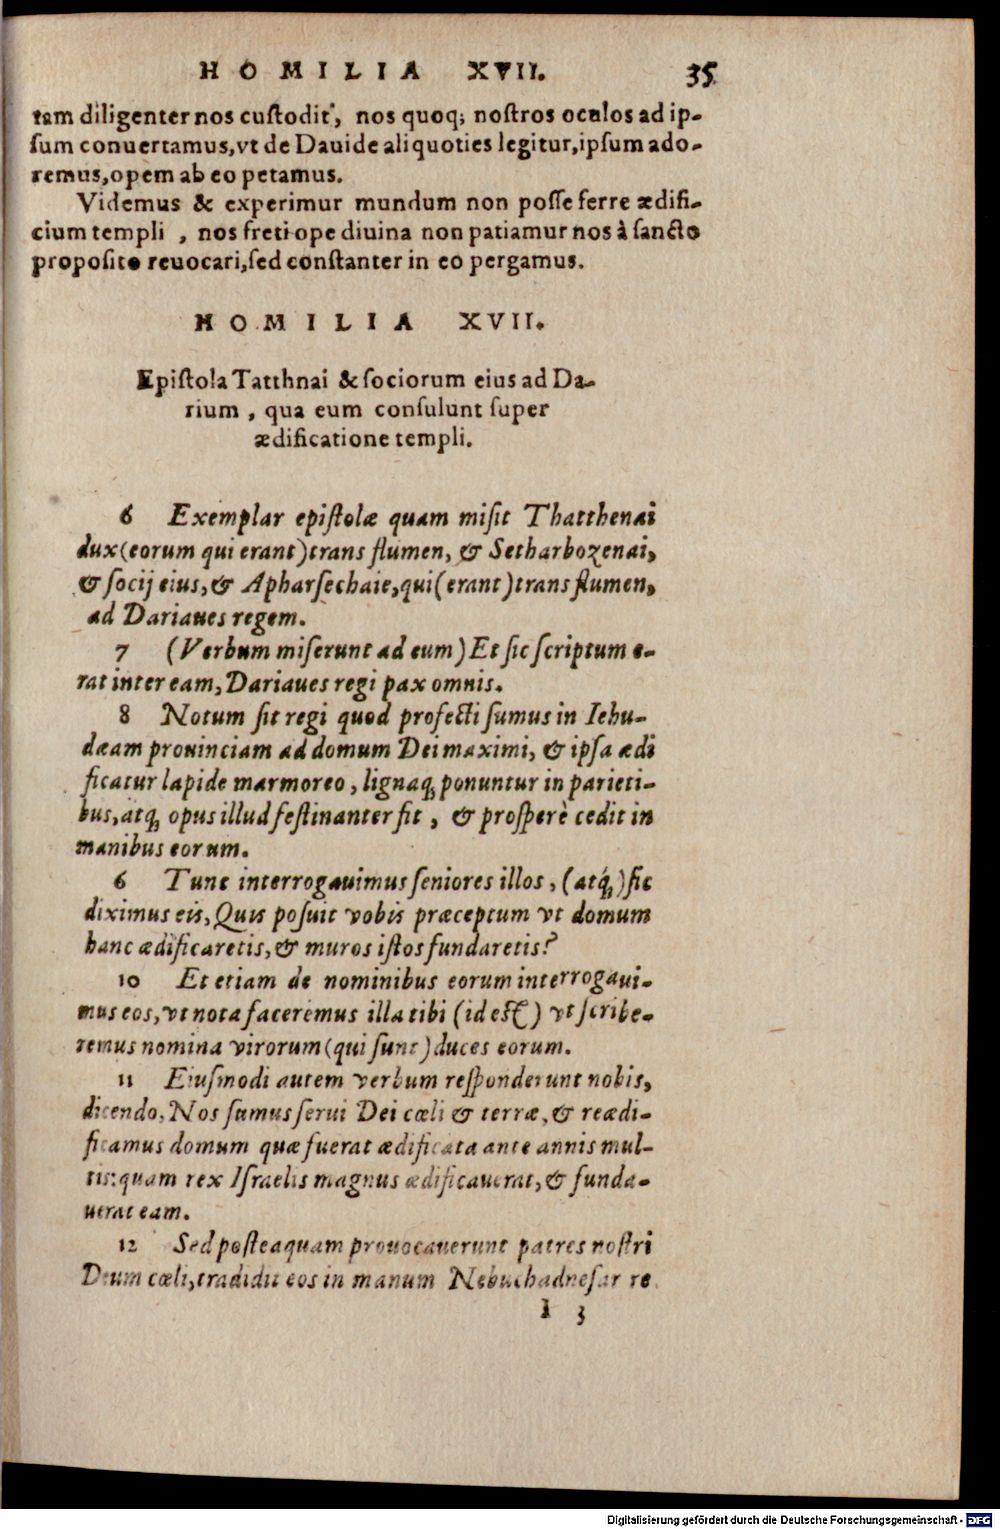 HOMILIA XVII. 35
tam diligenter nos custodit, nos quoq; nostros oculos ad ip-
sum conuertamus, vt de Dauide aliquoties legitur, ipsum ado-
remus, opem ab eo petamus.
Videmus & experimur mundum non posse ferre ædifi-
cium templi, nos freti ope diuina non patiamur nos à sancto
proposito reuocari, sed constanter in eo pergamus.
HOMILIA XVII.
Epistola Tatthnai & sociorum eius ad Da-
rium, qua eum consulunt super
ædificatione templi.
6 Exemplar epistolæ quam misit Thatthenai
dux (eorum qui erant) trans flumen, & Setharbozenai,
& socij eius, & Apharsechaie, qui (erant) trans flumen,
ad Dariaues regem.
7 (Verbum miserunt ad eum) Et sic scriptum e-
rat inter eam, Dariaues regi pax omnis.
8 Notum sit regi quod profecti sumus in Iehu-
dæam prouinciam ad domum Dei maximi, & ipsa ædi
ficatur lapide marmoreo, lignaq; ponuntur in parieti-
bus, atq; opus illud festinanter fit, & prosperè cedit in
manibus eorum.
6 Tunc interrogauimus seniores illos, (atq;) sic
diximus eis, Quis posuit vobis præceptum vt domum
hanc ædificaretis, & muros istos fundaretis?
10 Et etiam de nominibus eorum interrogaui-
mus eos, vt nota faceremus illa tibi (id est) vt scribe-
remus nomina virorum (qui sunt) duces eorum.
11 Eiusmodi autem verbum responderunt nobis,
dicendo, Nos sumus serui Dei cœli & terræ, & reædi-
ficamus domum quæ fuerat ædificata ante annis mul-
tis: quam rex Israelis magnus ædificauerat, & funda-
uerat eam.
12 Sed posteaquam prouocauerunt patres nostri
Deum cœli, tradidit eos in manum Nebuchadnesar re
I 3
Digitalisierung gefördert durch die Deutsche Forschungsgemeinschaft - DFG